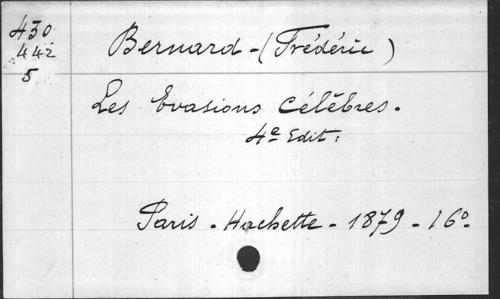 430
442
5
Bernard - (Frédéric)
Les Evasions Célèbres.
4e Edit:
Paris. Hachette. 1879. 16o